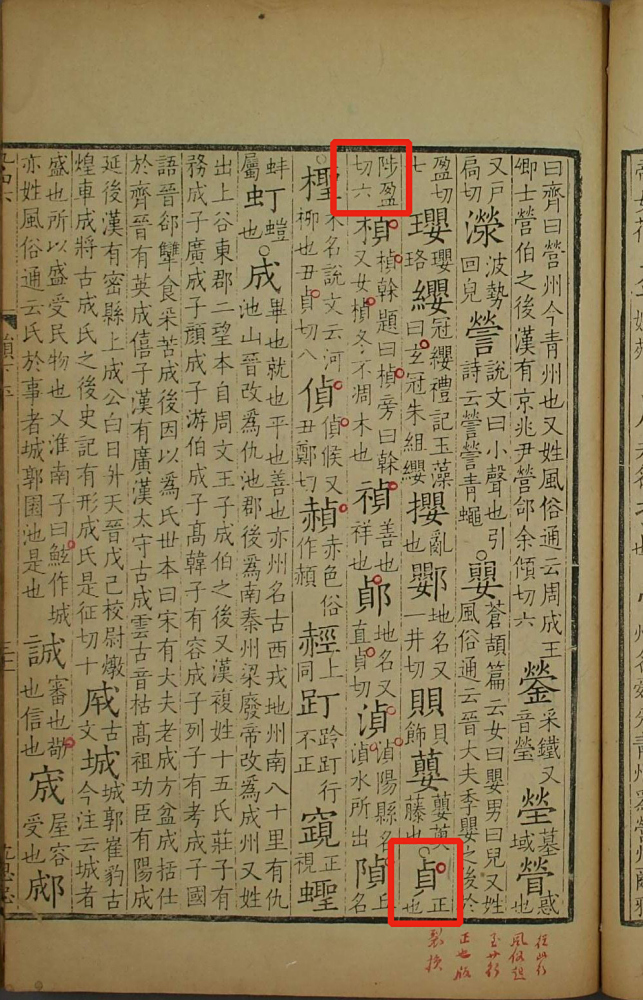 曰齊曰營州今青州也又姓風俗通云周成王卿士營伯之後漢有京兆尹營郃余傾切六鎣采鐵又音瑩塋墓域䁝惑也
又戶扃切濴波勢回皃謍說文曰小聲也引詩云謍謍青蠅○嬰蒼頡篇云女曰嬰男曰兒又姓風俗通云晉大夫季嬰之後於
盈切七瓔瓔珞纓冠纓禮記玉藻曰玄冠朱組纓攖亂也𨟙地名又一井切賏貝飾蘡蘡薁藤也○貞正也
陟盈切六楨楨榦題曰楨旁曰榦又女楨冬不凋木也禎善也祥也地名又直貞切湞湞陽縣名湞水所出丘名
○檉木名說文云河柳也丑貞切八偵偵候又丑鄭切赬赤色俗作頳䞓上同䟓跉䟓行不正竀正視蟶
蚌屬虰蟶也○成畢也就也平也善也亦州名古西戎地州南八十里有仇池山晉改爲仇池郡後爲南秦州梁廢帝改爲成州又姓
出上谷東郡二望本自周文王子成伯之後又漢複姓十五氏莊子有務成子廣成子顔成子游伯成子高韓子有容成子列子有考成子國
語晉郤犨食采苦成後因以爲氏世本曰宋有大夫老成方盆成括仕於齊晉有英成僖子漢有廣漢太守古成雲古音枯高祖功臣有陽成
延後漢有密縣上成公白日升天晉戊己校尉燉煌車成將古成氏之後史記有形成氏是征切十𢦩古文城城郭崔豹古今注云城者
盛也所以盛受民物也又淮南子曰鮌作城亦姓風俗通云氏於事者城郭園池是也誠審也敬也信也宬屋容受也郕